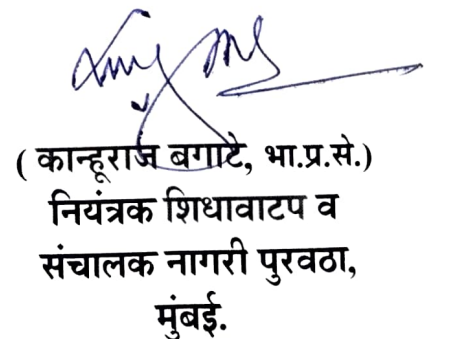 ( कान्हूराज बगाटे, भा.प्र.से.)
नियंत्रक शिधावाटप व
संचालक नागरी पुरवठा,
मुंबई.